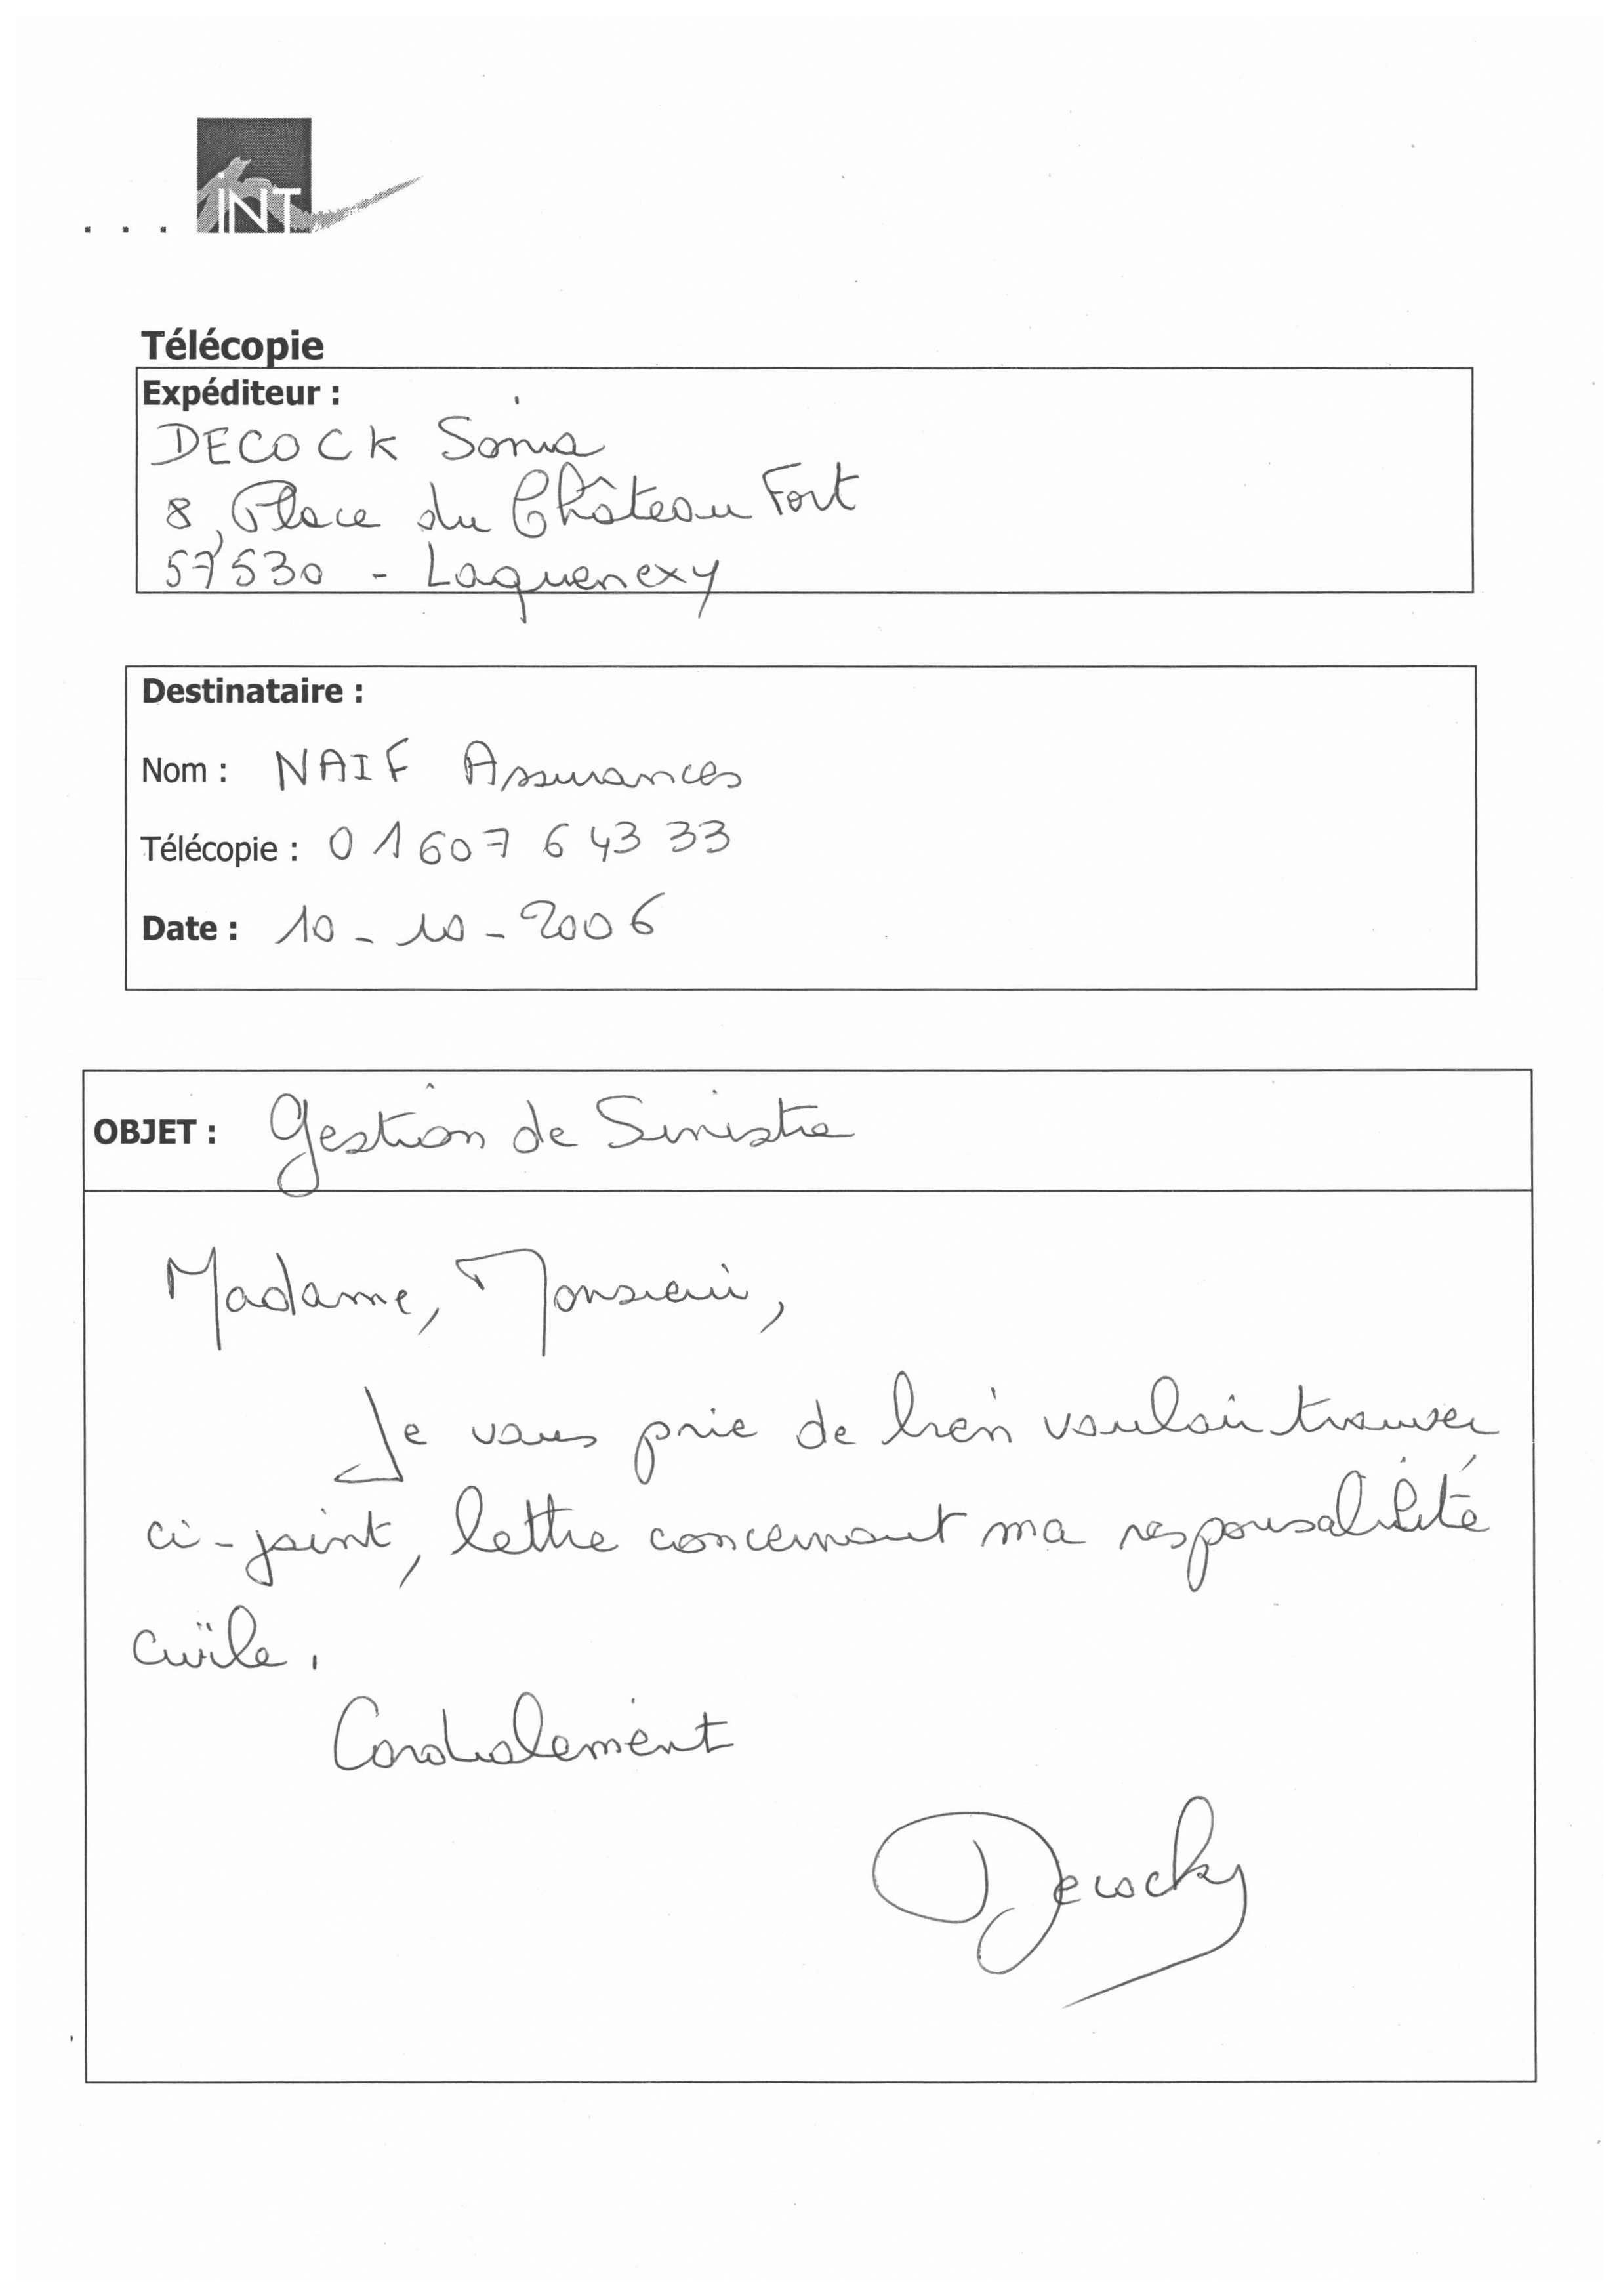 ... iNT
Télécopie
Expéditeur :
DECOCK Sonia
8, Place du Château Fort
57530 - Laquenexy
Destinataire :
Nom : NAIF Assurances
Télécopie : 01 60 7 6 43 33
Date : 10 - 10 - 2006
OBJET : Gestion de Sinistre
Madame, Monsieur,
Je vous prie de bien vouloir trouver
ci-joint, lettre concernant ma responsabilité
civile.
Cordialement
Decock